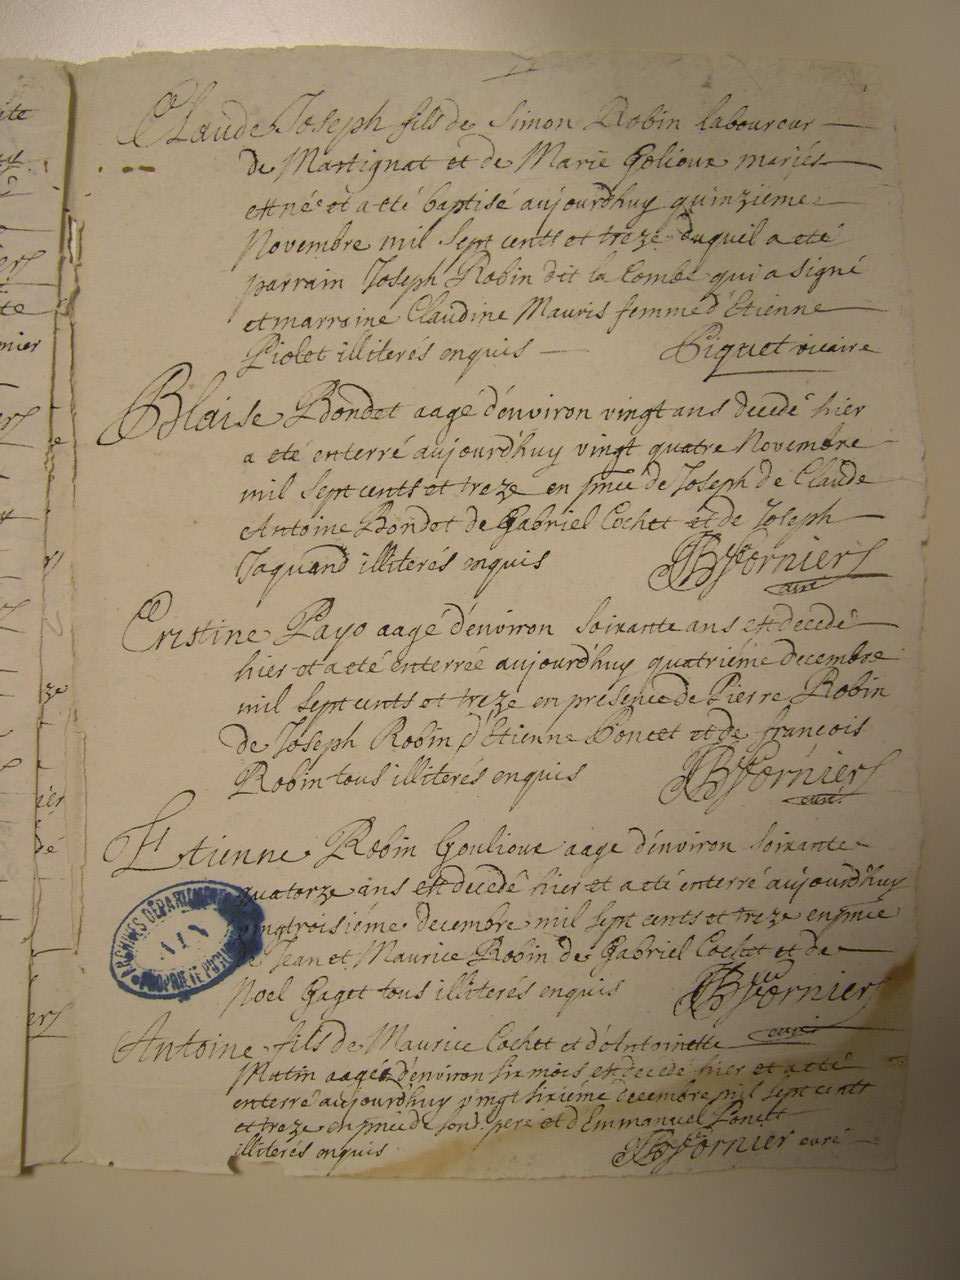 Claude Joseph fils de Simon Robin laboureur
de Martignat et de Marie Golioux mariés
est né et a eté baptisé aujourd'huy quinzième
Novembre mil sept cents et treze duquel a eté
parrain Joseph Robin dit la Combe qui a signé
et marraine Claudine Mauris femme d'Etienne
Piolet illiterés enquis Piquet vicaire
Blaise Bondet aagé d'environ vingt ans decedé hier
a eté enterré aujourd'huy vingt quatre Novembre
mil sept cents et treze en pnce de Joseph de Claude
Antoine Bondet de Gabriel Cochet et de Joseph
Jaquand illiterés enquis Fornier
curé
Cristine Payo aagé d'environ soixante ans est decedé
hier et a eté enterrée aujourd'huy quatriéme decembre
mil sept cents et treze en presence de Pierre Robin
de Joseph Robin d'Etienne Poncet et de françois
Robin tous illiterés enquis Fornier
curé
Etienne Robin Goulioux aagé d'environ soixante
quatorze ans est decedé hier et a eté enterré aujourd'huy
vingtroisiéme decembre mil sept cents et treze en pnce
de Jean et Maurice Robin de Gabriel Cochet et de
Noel Gaget tous illiterés enquis Fornier
curé
Antoine fils de Maurice Cochet et d'Antoinette
Mutin aagé d'environ six mois est decedé hier et a eté
enterré aujourd'huy vingt sixiéme decembre mil sept cent
et treze en pnce de son pere et d'Emmanuel Poncet
illiterés enquis Fornier curé
ARCHIVES DÉPARTEMENTALES
AIN
PROPRIÉTÉ PUBLIQUE